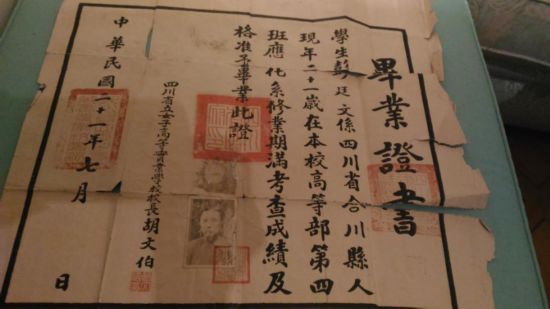 畢業證書
學生彭廷文係四川省合川縣人
現年二十一歲在本校高等部第四
班應化系修業期滿考查成績及
格准予畢業此證
四川省立女子高等學校校長胡文伯
中華民國二十一年七月 日